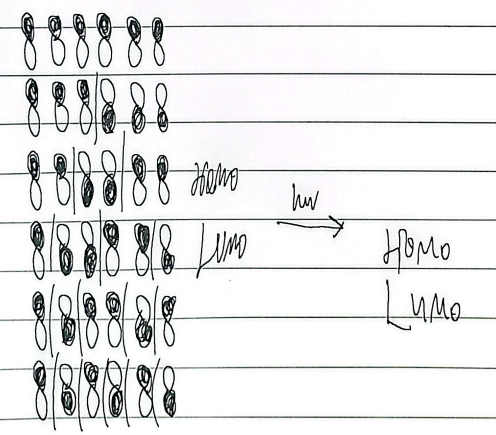 HOMO
hν
LUMO
HOMO
LUMO